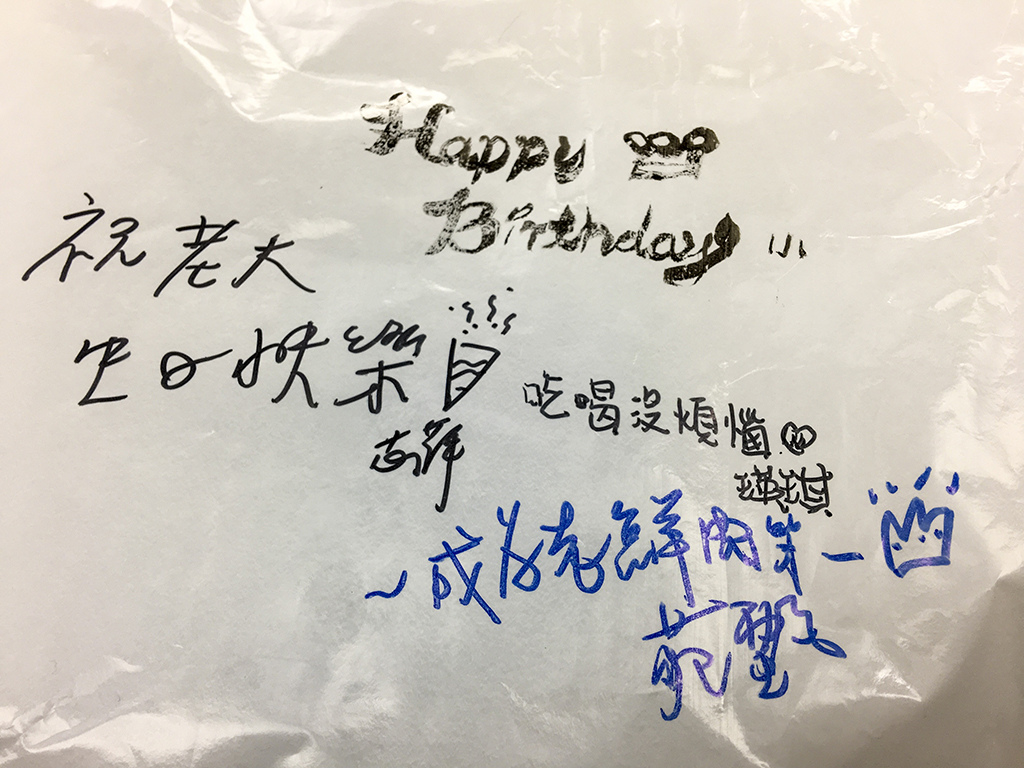 Happy
Birthday
祝老大
生日快樂
志祥
吃喝沒煩惱
瑛琪
~成為老鮮肉第一